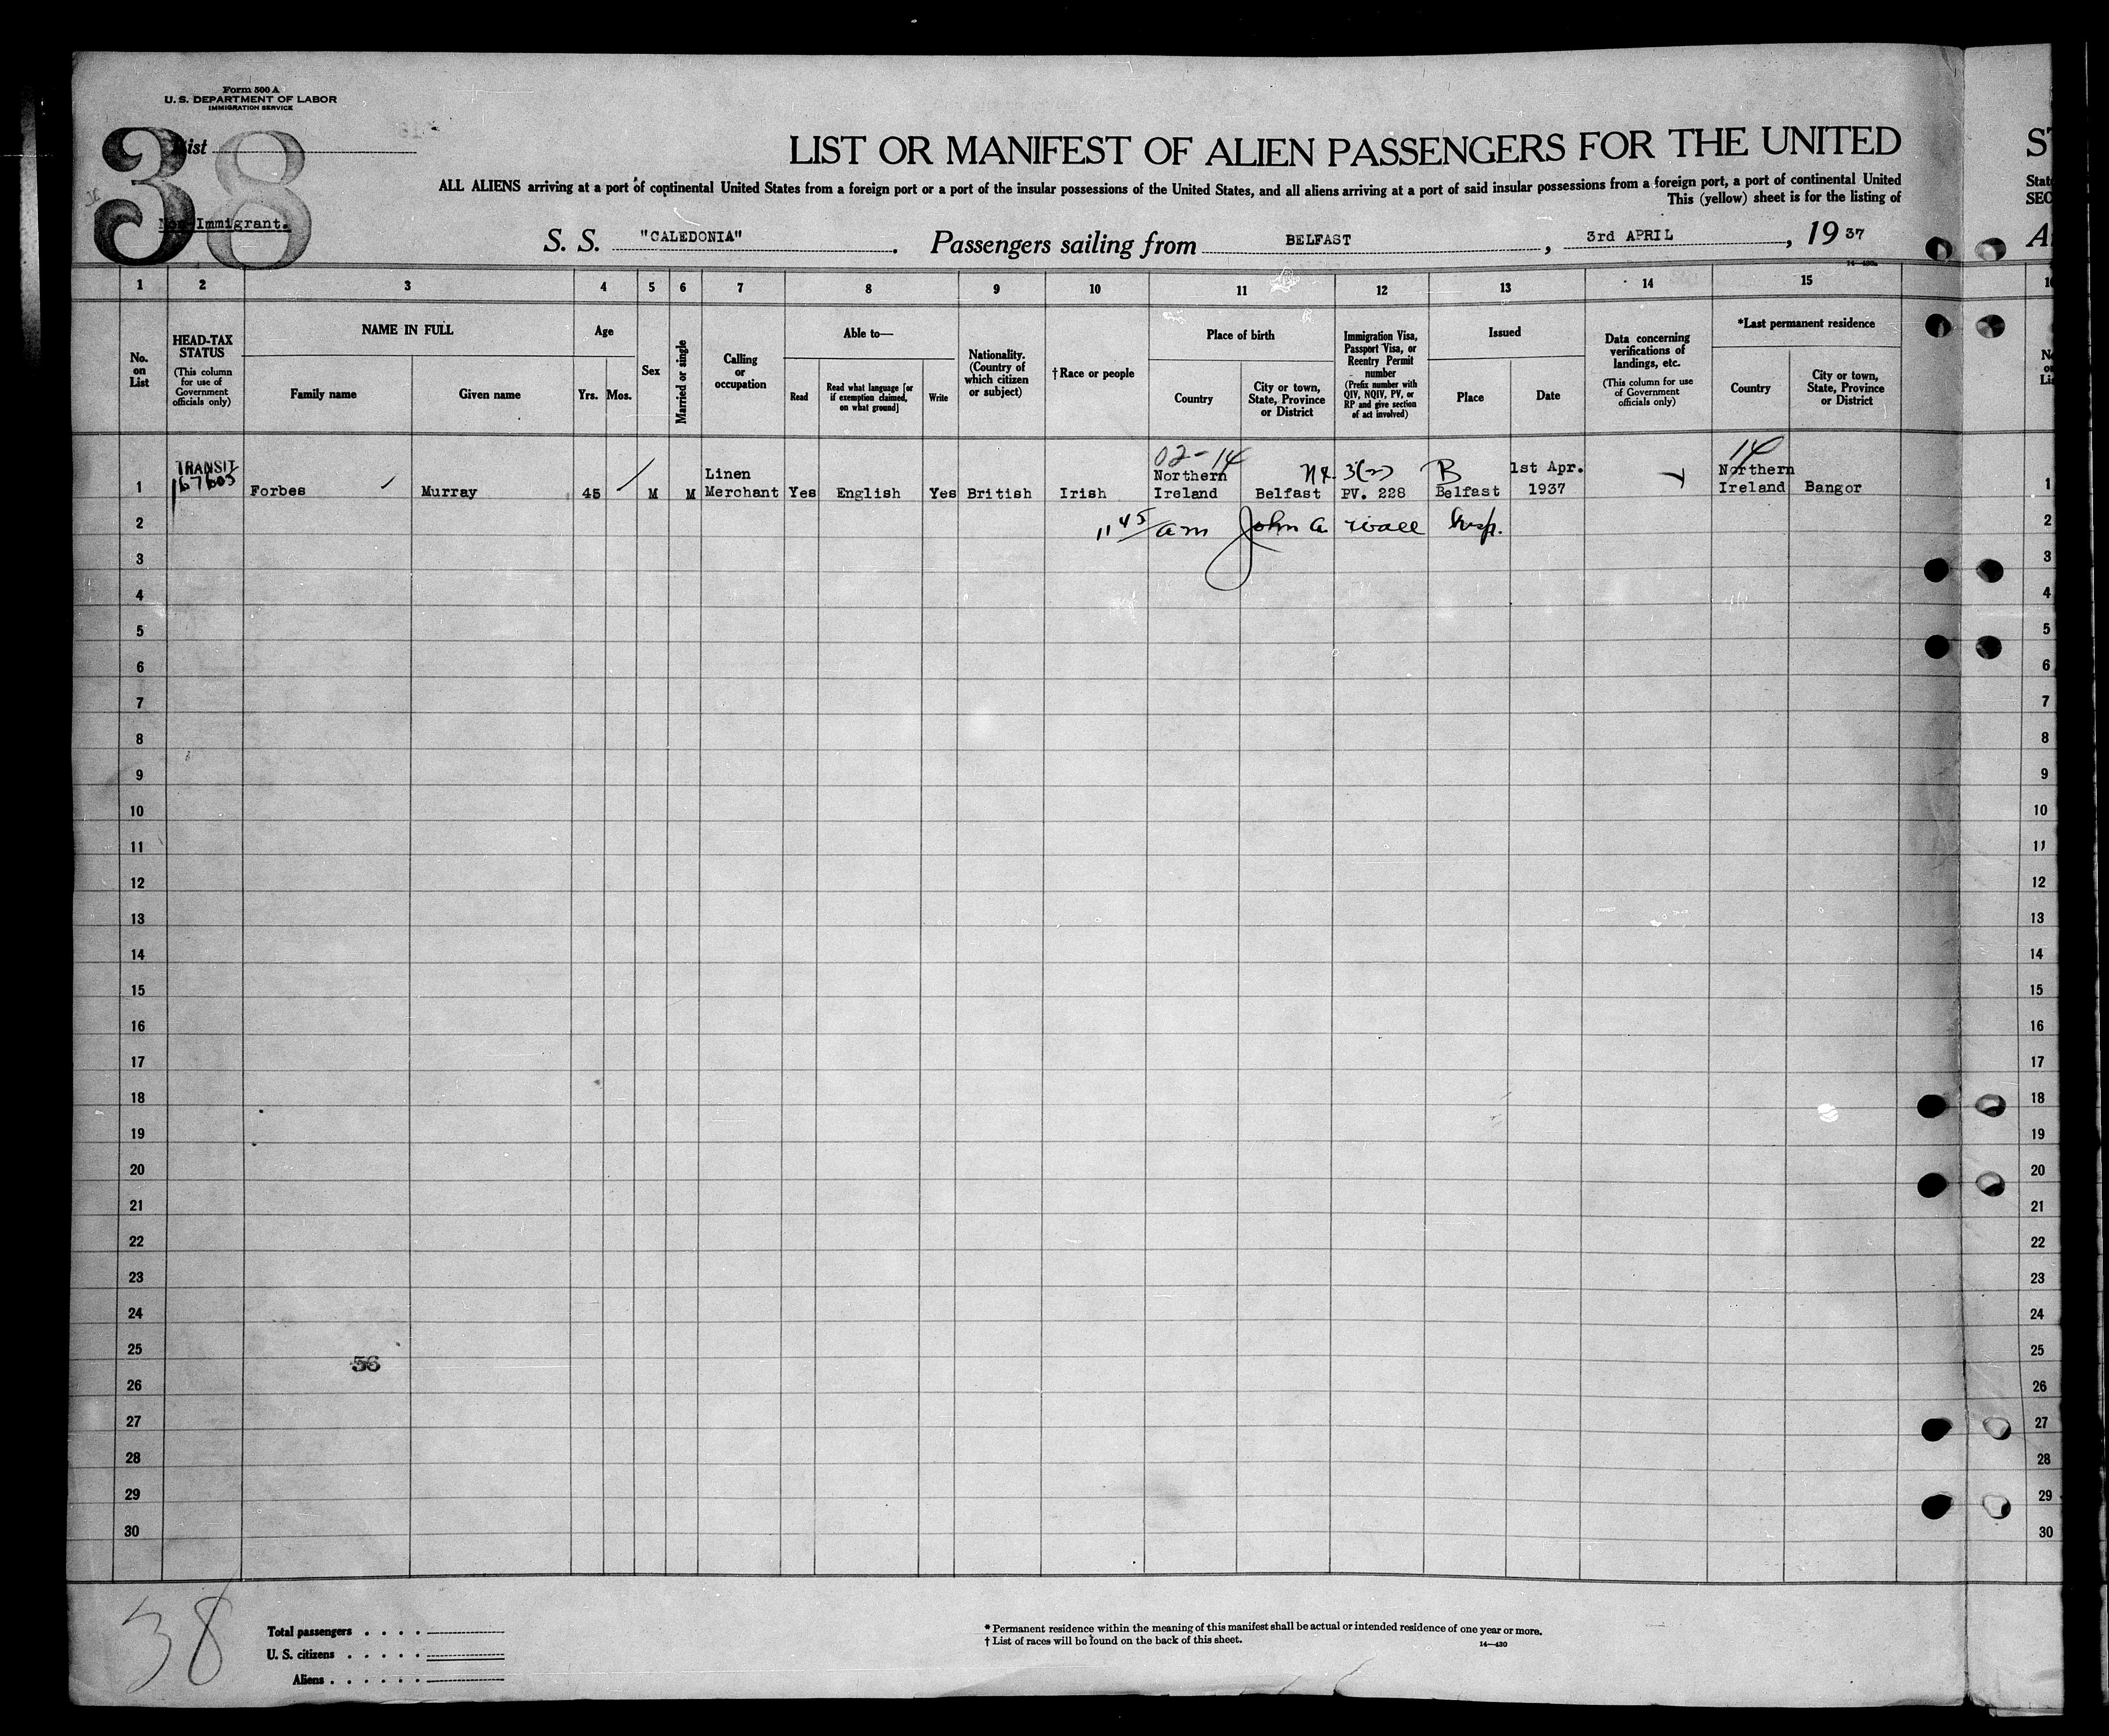 Form 500 A
U. S. DEPARTMENT OF LABOR
IMMIGRATION SERVICE
38
List
Non Immigrant.
LIST OR MANIFEST OF ALIEN PASSENGERS FOR THE UNITED
ALL ALIENS arriving at a port of continental United States from a foreign port or a port of the insular possessions of the United States, and all aliens arriving at a port of said insular possessions from a foreign port, a port of continental United
This (yellow) sheet is for the listing of
S. S. "CALEDONIA". Passengers sailing from BELFAST, 3rd APRIL, 19 37
1 2 3 4 5 6 7 8 9 10 11 12 13 14 15
No. on List
HEAD-TAX STATUS
(This column for use of Government officials only)
NAME IN FULL
Family name
Given name
Age
Yrs. Mos.
Sex
Married or single
Calling or occupation
Able to—
Read
Read what language [or if exemption claimed, on what ground]
Write
Nationality. (Country of which citizen or subject)
†Race or people
Place of birth
Country
City or town, State, Province or District
Immigration Visa, Passport Visa, or Reentry Permit number
(Prefix number with QIV, NQIV, PV, or RP and give section of act involved)
Issued
Place
Date
Data concerning verifications of landings, etc.
(This column for use of Government officials only)
*Last permanent residence
Country
City or town, State, Province or District
02-14
14
TRANSIT
167605
1 Forbes Murray 45 M M Linen Merchant Yes English Yes British Irish Northern Ireland Belfast 3(2) PV. 228 B Belfast 1st Apr. 1937 Northern Ireland Bangor 1
2 11 45 am John A. Wall Insp. 2
3 3
4 4
5 5
6 6
7 7
8 8
9 9
10 10
11 11
12 12
13 13
14 14
15 15
16 16
17 17
18 18
19 19
20 20
21 21
22 22
23 23
24 24
25 25
56
26 26
27 27
28 28
29 29
30 30
38
Total passengers
U. S. citizens
Aliens
* Permanent residence within the meaning of this manifest shall be actual or intended residence of one year or more.
† List of races will be found on the back of this sheet.
14—430